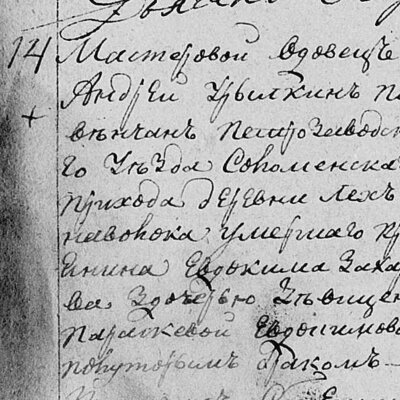 14 Мастеровой вдовецъ
Андрей Урылкинъ по
вѣнчанъ петрозаводска
го Уѣзда Соломенска
прихода деревни Лехъ
наволока умершаго кр
енина Евдокима Заха
ва Здочерью Дѣвицею
параскевой Евдокимово
повуторымъ бракомъ